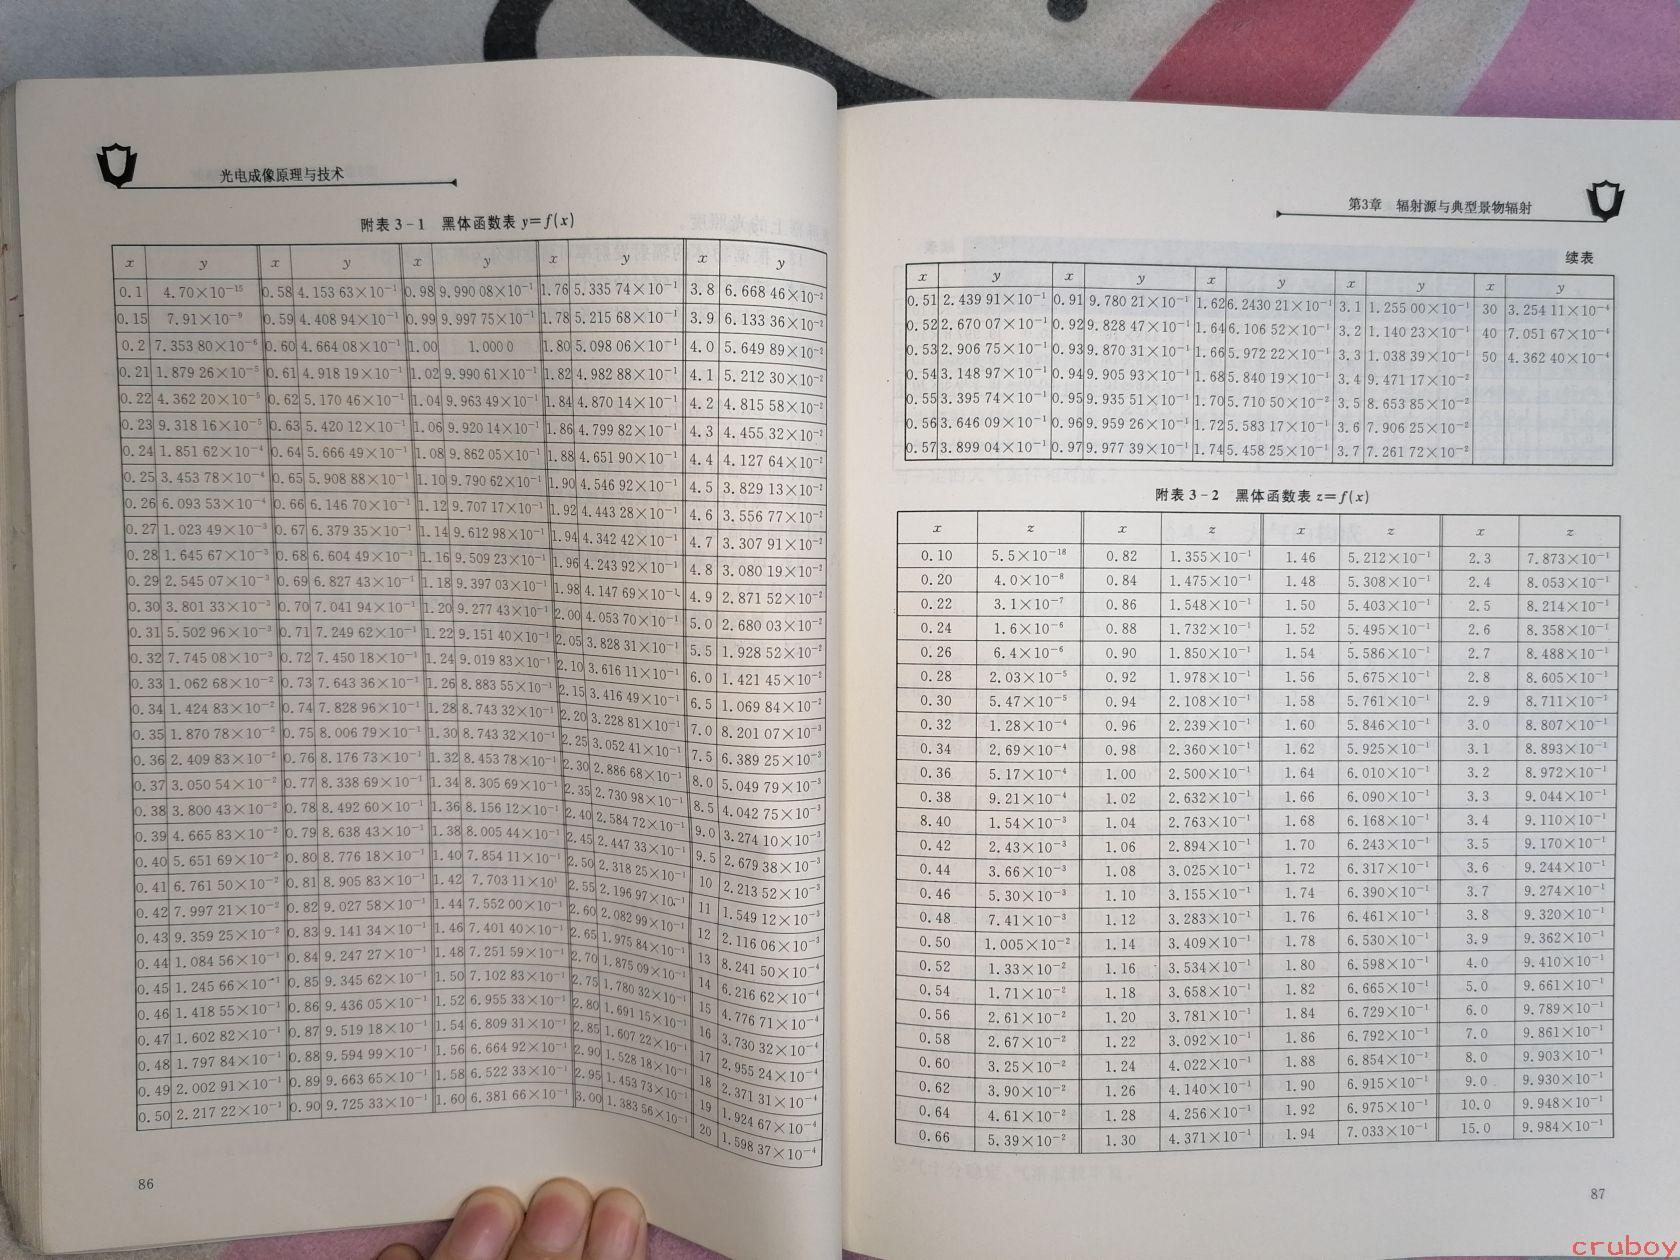 光电成像原理与技术
附表 3-1 黑体函数表 y=f(x)
x y x y x y x y x y
0.1 4.70×10⁻¹⁵ 0.58 4.153 63×10⁻¹ 0.98 9.990 08×10⁻¹ 1.76 5.335 74×10⁻¹ 3.8 6.668 46×10⁻²
0.15 7.91×10⁻⁹ 0.59 4.408 94×10⁻¹ 0.99 9.997 75×10⁻¹ 1.78 5.215 68×10⁻¹ 3.9 6.133 36×10⁻²
0.2 7.353 80×10⁻⁶ 0.60 4.664 08×10⁻¹ 1.00 1.000 0 1.80 5.098 06×10⁻¹ 4.0 5.649 89×10⁻²
0.21 1.879 26×10⁻⁵ 0.61 4.918 19×10⁻¹ 1.02 9.990 61×10⁻¹ 1.82 4.982 88×10⁻¹ 4.1 5.212 30×10⁻²
0.22 4.362 20×10⁻⁵ 0.62 5.170 46×10⁻¹ 1.04 9.963 49×10⁻¹ 1.84 4.870 14×10⁻¹ 4.2 4.815 58×10⁻²
0.23 9.318 16×10⁻⁵ 0.63 5.420 12×10⁻¹ 1.06 9.920 14×10⁻¹ 1.86 4.799 82×10⁻¹ 4.3 4.455 32×10⁻²
0.24 1.851 62×10⁻⁴ 0.64 5.666 49×10⁻¹ 1.08 9.862 05×10⁻¹ 1.88 4.651 90×10⁻¹ 4.4 4.127 64×10⁻²
0.25 3.453 78×10⁻⁴ 0.65 5.908 88×10⁻¹ 1.10 9.790 62×10⁻¹ 1.90 4.546 92×10⁻¹ 4.5 3.829 13×10⁻²
0.26 6.093 53×10⁻⁴ 0.66 6.146 70×10⁻¹ 1.12 9.707 17×10⁻¹ 1.92 4.443 28×10⁻¹ 4.6 3.556 77×10⁻²
0.27 1.023 49×10⁻³ 0.67 6.379 35×10⁻¹ 1.14 9.612 98×10⁻¹ 1.94 4.342 42×10⁻¹ 4.7 3.307 91×10⁻²
0.28 1.645 67×10⁻³ 0.68 6.604 49×10⁻¹ 1.16 9.509 23×10⁻¹ 1.96 4.243 92×10⁻¹ 4.8 3.080 19×10⁻²
0.29 2.545 07×10⁻³ 0.69 6.827 43×10⁻¹ 1.18 9.397 03×10⁻¹ 1.98 4.147 69×10⁻¹ 4.9 2.871 52×10⁻²
0.30 3.801 33×10⁻³ 0.70 7.041 94×10⁻¹ 1.20 9.277 43×10⁻¹ 2.00 4.053 70×10⁻¹ 5.0 2.680 03×10⁻²
0.31 5.502 96×10⁻³ 0.71 7.249 62×10⁻¹ 1.22 9.151 40×10⁻¹ 2.05 3.828 31×10⁻¹ 5.5 1.928 52×10⁻²
0.32 7.745 08×10⁻³ 0.72 7.450 18×10⁻¹ 1.24 9.019 83×10⁻¹ 2.10 3.616 11×10⁻¹ 6.0 1.421 45×10⁻²
0.33 1.062 68×10⁻² 0.73 7.643 36×10⁻¹ 1.26 8.883 55×10⁻¹ 2.15 3.416 49×10⁻¹ 6.5 1.069 84×10⁻²
0.34 1.424 83×10⁻² 0.74 7.828 96×10⁻¹ 1.28 8.743 32×10⁻¹ 2.20 3.228 81×10⁻¹ 7.0 8.201 07×10⁻³
0.35 1.870 78×10⁻² 0.75 8.006 79×10⁻¹ 1.30 8.743 32×10⁻¹ 2.25 3.052 41×10⁻¹ 7.5 6.389 25×10⁻³
0.36 2.409 83×10⁻² 0.76 8.176 73×10⁻¹ 1.32 8.453 78×10⁻¹ 2.30 2.886 68×10⁻¹ 8.0 5.049 79×10⁻³
0.37 3.050 54×10⁻² 0.77 8.338 69×10⁻¹ 1.34 8.305 69×10⁻¹ 2.35 2.730 98×10⁻¹ 8.5 4.042 75×10⁻³
0.38 3.800 43×10⁻² 0.78 8.492 60×10⁻¹ 1.36 8.156 12×10⁻¹ 2.40 2.584 72×10⁻¹ 9.0 3.274 10×10⁻³
0.39 4.665 83×10⁻² 0.79 8.638 43×10⁻¹ 1.38 8.005 44×10⁻¹ 2.45 2.447 33×10⁻¹ 9.5 2.679 38×10⁻³
0.40 5.651 69×10⁻² 0.80 8.776 18×10⁻¹ 1.40 7.854 11×10⁻¹ 2.50 2.318 25×10⁻¹ 10 2.213 52×10⁻³
0.41 6.761 50×10⁻² 0.81 8.905 83×10⁻¹ 1.42 7.703 11×10¹ 2.55 2.196 97×10⁻¹ 11 1.549 12×10⁻³
0.42 7.997 21×10⁻² 0.82 9.027 58×10⁻¹ 1.44 7.552 00×10⁻¹ 2.60 2.082 99×10⁻¹ 12 2.116 06×10⁻³
0.43 9.359 25×10⁻² 0.83 9.141 34×10⁻¹ 1.46 7.401 40×10⁻¹ 2.65 1.975 84×10⁻¹ 13 8.241 50×10⁻⁴
0.44 1.084 56×10⁻¹ 0.84 9.247 27×10⁻¹ 1.48 7.251 59×10⁻¹ 2.70 1.875 09×10⁻¹ 14 6.216 62×10⁻⁴
0.45 1.245 66×10⁻¹ 0.85 9.345 62×10⁻¹ 1.50 7.102 83×10⁻¹ 2.75 1.780 32×10⁻¹ 15 4.776 71×10⁻⁴
0.46 1.418 55×10⁻¹ 0.86 9.436 05×10⁻¹ 1.52 6.955 33×10⁻¹ 2.80 1.691 15×10⁻¹ 16 3.730 32×10⁻⁴
0.47 1.602 82×10⁻¹ 0.87 9.519 18×10⁻¹ 1.54 6.809 31×10⁻¹ 2.85 1.607 22×10⁻¹ 17 2.955 24×10⁻⁴
0.48 1.797 84×10⁻¹ 0.88 9.594 99×10⁻¹ 1.56 6.664 92×10⁻¹ 2.90 1.528 18×10⁻¹ 18 2.371 31×10⁻⁴
0.49 2.002 91×10⁻¹ 0.89 9.663 65×10⁻¹ 1.58 6.522 33×10⁻¹ 2.95 1.453 73×10⁻¹ 19 1.924 67×10⁻⁴
0.50 2.217 22×10⁻¹ 0.90 9.725 33×10⁻¹ 1.60 6.381 66×10⁻¹ 3.00 1.383 56×10⁻¹ 20 1.598 37×10⁻⁴
86
第3章 辐射源与典型景物辐射
续表
x y x y x y x y x y
0.51 2.439 91×10⁻¹ 0.91 9.780 21×10⁻¹ 1.62 6.2430 21×10⁻¹ 3.1 1.255 00×10⁻¹ 30 3.254 11×10⁻⁴
0.52 2.670 07×10⁻¹ 0.92 9.828 47×10⁻¹ 1.64 6.106 52×10⁻¹ 3.2 1.140 23×10⁻¹ 40 7.051 67×10⁻⁴
0.53 2.906 75×10⁻¹ 0.93 9.870 31×10⁻¹ 1.66 5.972 22×10⁻¹ 3.3 1.038 39×10⁻¹ 50 4.362 40×10⁻⁴
0.54 3.148 97×10⁻¹ 0.94 9.905 93×10⁻¹ 1.68 5.840 19×10⁻¹ 3.4 9.471 17×10⁻²
0.55 3.395 74×10⁻¹ 0.95 9.935 51×10⁻¹ 1.70 5.710 50×10⁻² 3.5 8.653 85×10⁻²
0.56 3.646 09×10⁻¹ 0.96 9.959 26×10⁻¹ 1.72 5.583 17×10⁻¹ 3.6 7.906 25×10⁻²
0.57 3.899 04×10⁻¹ 0.97 9.977 39×10⁻¹ 1.74 5.458 25×10⁻¹ 3.7 7.261 72×10⁻²
附表 3-2 黑体函数表 z=f(x)
x z x z x z x z
0.10 5.5×10⁻¹⁸ 0.82 1.355×10⁻¹ 1.46 5.212×10⁻¹ 2.3 7.873×10⁻¹
0.20 4.0×10⁻⁸ 0.84 1.475×10⁻¹ 1.48 5.308×10⁻¹ 2.4 8.053×10⁻¹
0.22 3.1×10⁻⁷ 0.86 1.548×10⁻¹ 1.50 5.403×10⁻¹ 2.5 8.214×10⁻¹
0.24 1.6×10⁻⁶ 0.88 1.732×10⁻¹ 1.52 5.495×10⁻¹ 2.6 8.358×10⁻¹
0.26 6.4×10⁻⁶ 0.90 1.850×10⁻¹ 1.54 5.586×10⁻¹ 2.7 8.488×10⁻¹
0.28 2.03×10⁻⁵ 0.92 1.978×10⁻¹ 1.56 5.675×10⁻¹ 2.8 8.605×10⁻¹
0.30 5.47×10⁻⁵ 0.94 2.108×10⁻¹ 1.58 5.761×10⁻¹ 2.9 8.711×10⁻¹
0.32 1.28×10⁻⁴ 0.96 2.239×10⁻¹ 1.60 5.846×10⁻¹ 3.0 8.807×10⁻¹
0.34 2.69×10⁻⁴ 0.98 2.360×10⁻¹ 1.62 5.925×10⁻¹ 3.1 8.893×10⁻¹
0.36 5.17×10⁻⁴ 1.00 2.500×10⁻¹ 1.64 6.010×10⁻¹ 3.2 8.972×10⁻¹
0.38 9.21×10⁻⁴ 1.02 2.632×10⁻¹ 1.66 6.090×10⁻¹ 3.3 9.044×10⁻¹
8.40 1.54×10⁻³ 1.04 2.763×10⁻¹ 1.68 6.168×10⁻¹ 3.4 9.110×10⁻¹
0.42 2.43×10⁻³ 1.06 2.894×10⁻¹ 1.70 6.243×10⁻¹ 3.5 9.170×10⁻¹
0.44 3.66×10⁻³ 1.08 3.025×10⁻¹ 1.72 6.317×10⁻¹ 3.6 9.244×10⁻¹
0.46 5.30×10⁻³ 1.10 3.155×10⁻¹ 1.74 6.390×10⁻¹ 3.7 9.274×10⁻¹
0.48 7.41×10⁻³ 1.12 3.283×10⁻¹ 1.76 6.461×10⁻¹ 3.8 9.320×10⁻¹
0.50 1.005×10⁻² 1.14 3.409×10⁻¹ 1.78 6.530×10⁻¹ 3.9 9.362×10⁻¹
0.52 1.33×10⁻² 1.16 3.534×10⁻¹ 1.80 6.598×10⁻¹ 4.0 9.410×10⁻¹
0.54 1.71×10⁻² 1.18 3.658×10⁻¹ 1.82 6.665×10⁻¹ 5.0 9.661×10⁻¹
0.56 2.61×10⁻² 1.20 3.781×10⁻¹ 1.84 6.729×10⁻¹ 6.0 9.789×10⁻¹
0.58 2.67×10⁻² 1.22 3.092×10⁻¹ 1.86 6.792×10⁻¹ 7.0 9.861×10⁻¹
0.60 3.25×10⁻² 1.24 4.022×10⁻¹ 1.88 6.854×10⁻¹ 8.0 9.903×10⁻¹
0.62 3.90×10⁻² 1.26 4.140×10⁻¹ 1.90 6.915×10⁻¹ 9.0 9.930×10⁻¹
0.64 4.61×10⁻² 1.28 4.256×10⁻¹ 1.92 6.975×10⁻¹ 10.0 9.948×10⁻¹
0.66 5.39×10⁻² 1.30 4.371×10⁻¹ 1.94 7.033×10⁻¹ 15.0 9.984×10⁻¹
87
cruboy